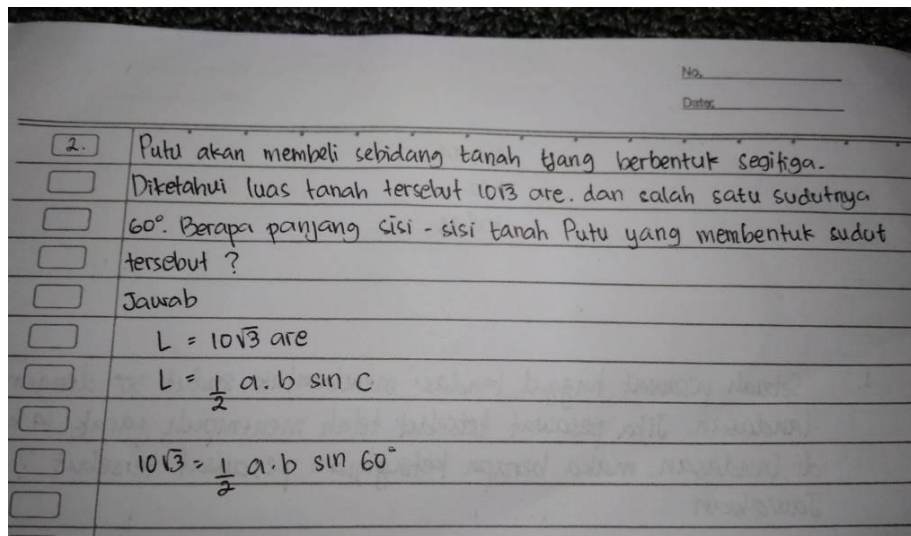 No.
Date:
2. Putu akan membeli sebidang tanah yang berbentuk segitiga.
Diketahui luas tanah tersebut 10√3 are. dan salah satu sudutnya
60°. Berapa panjang sisi - sisi tanah Putu yang membentuk sudut
tersebut ?
Jawab
L = 10√3 are
L = 1/2 a. b sin C
10√3 = 1/2 a. b sin 60°